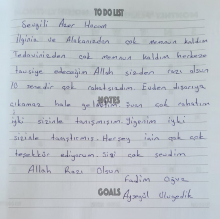 TO DO LIST
Sevgili Azer Hanım
İlginiz ve Alakanızdan çok memnun kaldım
Tedavinizden çok memnun kaldım herkeze
tavsiye edeceğim Allah sizden razı olsun
10 senedir çok rahatsızdım Evden dışarıya
çıkamaz hale gelmiştim. Şuan çok rahatım
NOTES
iyki sizinle tanışmışım. Diyorum iyki
sizinle tanıştımız. Herşey için çok çok
teşekkür ediyorum sizi çok sevdim
Allah Razı Olsun.
Fadim Oğuz
GOALS
Ayşegül